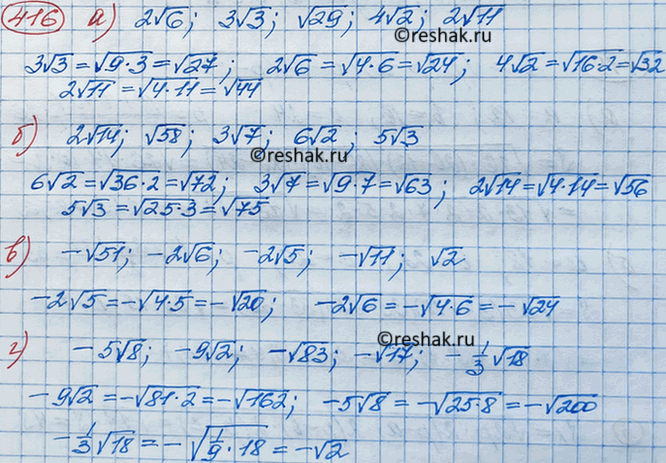 416 а) 2√6; 3√3; √29; 4√2; 2√11
3√3 = √9·3 = √27; 2√6 = √4·6 = √24; 4√2 = √16·2 = √32
2√11 = √4·11 = √44
б) 2√14; √58; 3√7; 6√2; 5√3
©reshak.ru
6√2 = √36·2 = √72; 3√7 = √9·7 = √63; 2√14 = √4·14 = √56
5√3 = √25·3 = √75
в) -√51; -2√6; -2√5; -√11; √2
-2√5 = -√4·5 = -√20; -2√6 = -√4·6 = -√24
©reshak.ru
г) -5√8; -9√2; -√83; -√17; -1/3√18
-9√2 = -√81·2 = -√162; -5√8 = -√25·8 = -√200
-1/3√18 = -√1/9·18 = -√2